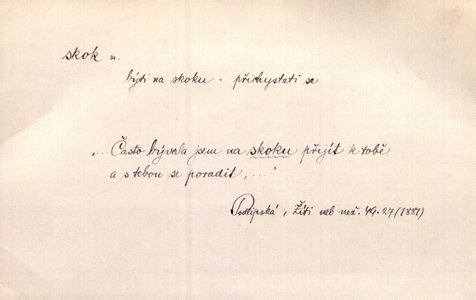 skok m.
býti na skoku - přichystati se
„... Často bývala jsem na skoku přijít k tobě
a s tebou se poradit, ..."
Podlipská, Žíti neb než. 49.27 (1881)